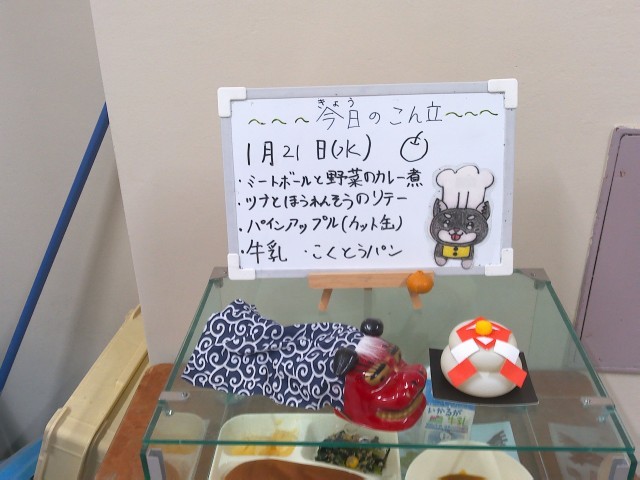 ～～～今日のこん立～～～
きょう
1月21日(水)
・ミートボールと野菜のカレー煮
・ツナとほうれんそうのソテー
・パインアップル(カット缶)
・牛乳 ・こくとうパン
いかるが